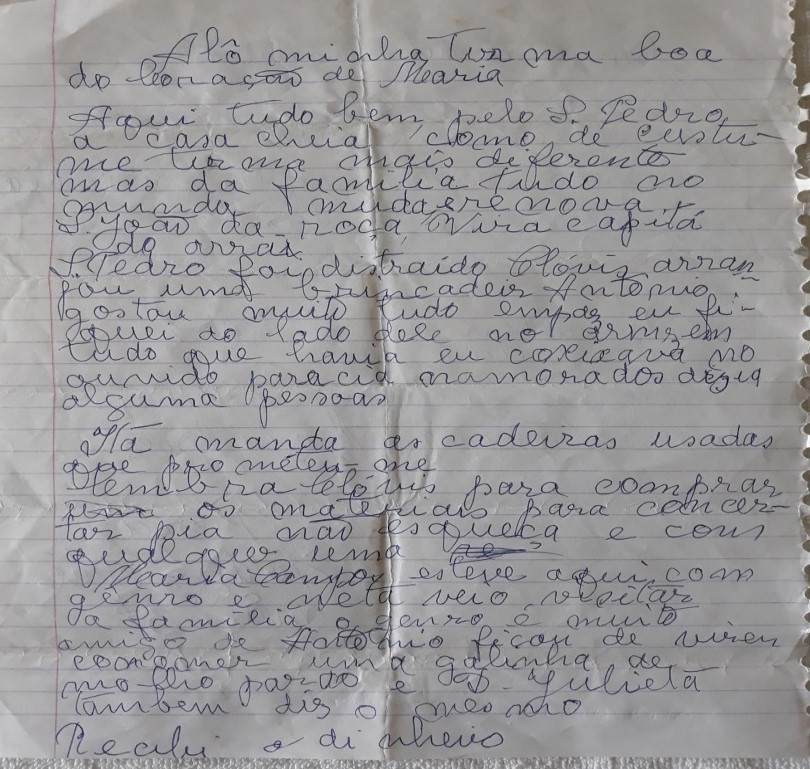 Alô minha turma boa
do Coração de Maria
Aqui tudo bem, pelo S. Pedro
a casa cheia, como de custu-
me turma mais diferente
mas da familia tudo no
mundo muda e renova.
S. João da roça, vira capitá
do arraá
S. Pedro foi distraído Clóvis arran
jou uma brincadeir Antônio
gostou muito tudo em paz eu fi-
quei ao lado dele no armzem
tudo que havia eu coxixava no
ouvido paracia namorados dizia
alguma pessoas
Iá manda as cadeiras usadas
que prometeu-me
lembra Clóvis para comprar
os materiais para concer-
tar pia não esqueça e com
qualquer uma
Maria Campos esteve aqui com
genro e neta veio visitar
da familia o genro é muito
amigo de Antônio ficou de virem
comer uma galinha de
molho pardo e D. Julieta
tambem diz o mesmo
Recebi o dinheiro